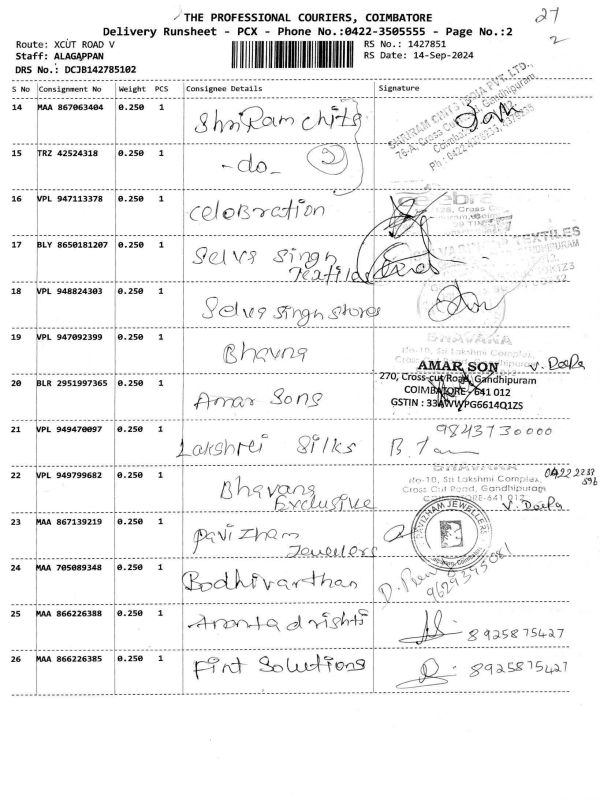 THE PROFESSIONAL COURIERS, COIMBATORE
27
2
Delivery Runsheet - PCX - Phone No.:0422-3505555 - Page No.:2
Route: XCUT ROAD V
RS No.: 1427851
Staff: ALAGAPPAN
RS Date: 14-Sep-2024
DRS No.: DCJB142785102
S No Consignment No Weight PCS Consignee Details Signature
14 MAA 867063404 0.250 1 Shri Ram Chits
15 TRZ 42524318 0.250 1 -do- 2
16 VPL 947113378 0.250 1 Celobration
17 BLY 8650181207 0.250 1 Selva Singh
Textiles
TEXTILES
18 VPL 948824303 0.250 1 Selva Singh Stores
19 VPL 947092399 0.250 1 Bhavna
BHAVANA
No-10, Sri Lakshmi Complex,
AMAR SON
270, Cross-cut Road, Gandhipuram
COIMBATORE - 641 012
GSTIN : 33AWVPG6614Q1ZS
20 BLR 2951997365 0.250 1 Amar Sons
21 VPL 949470097 0.250 1 Lakshmi Silks
9843730000
22 VPL 949799682 0.250 1 Bhavana
Exclusive
BHAVANA
No-10, Sri Lakshmi Complex,
Cross Cut Road, Gandhipuram
23 MAA 867139219 0.250 1 Pavizham
Jewellers
PAVIZHAM JEWELLERS
24 MAA 705089348 0.250 1 Bodhivarthan
9629395081
25 MAA 866226388 0.250 1 Ananta drishti
8925875427
26 MAA 866226385 0.250 1 Fint Solutions
8925875427